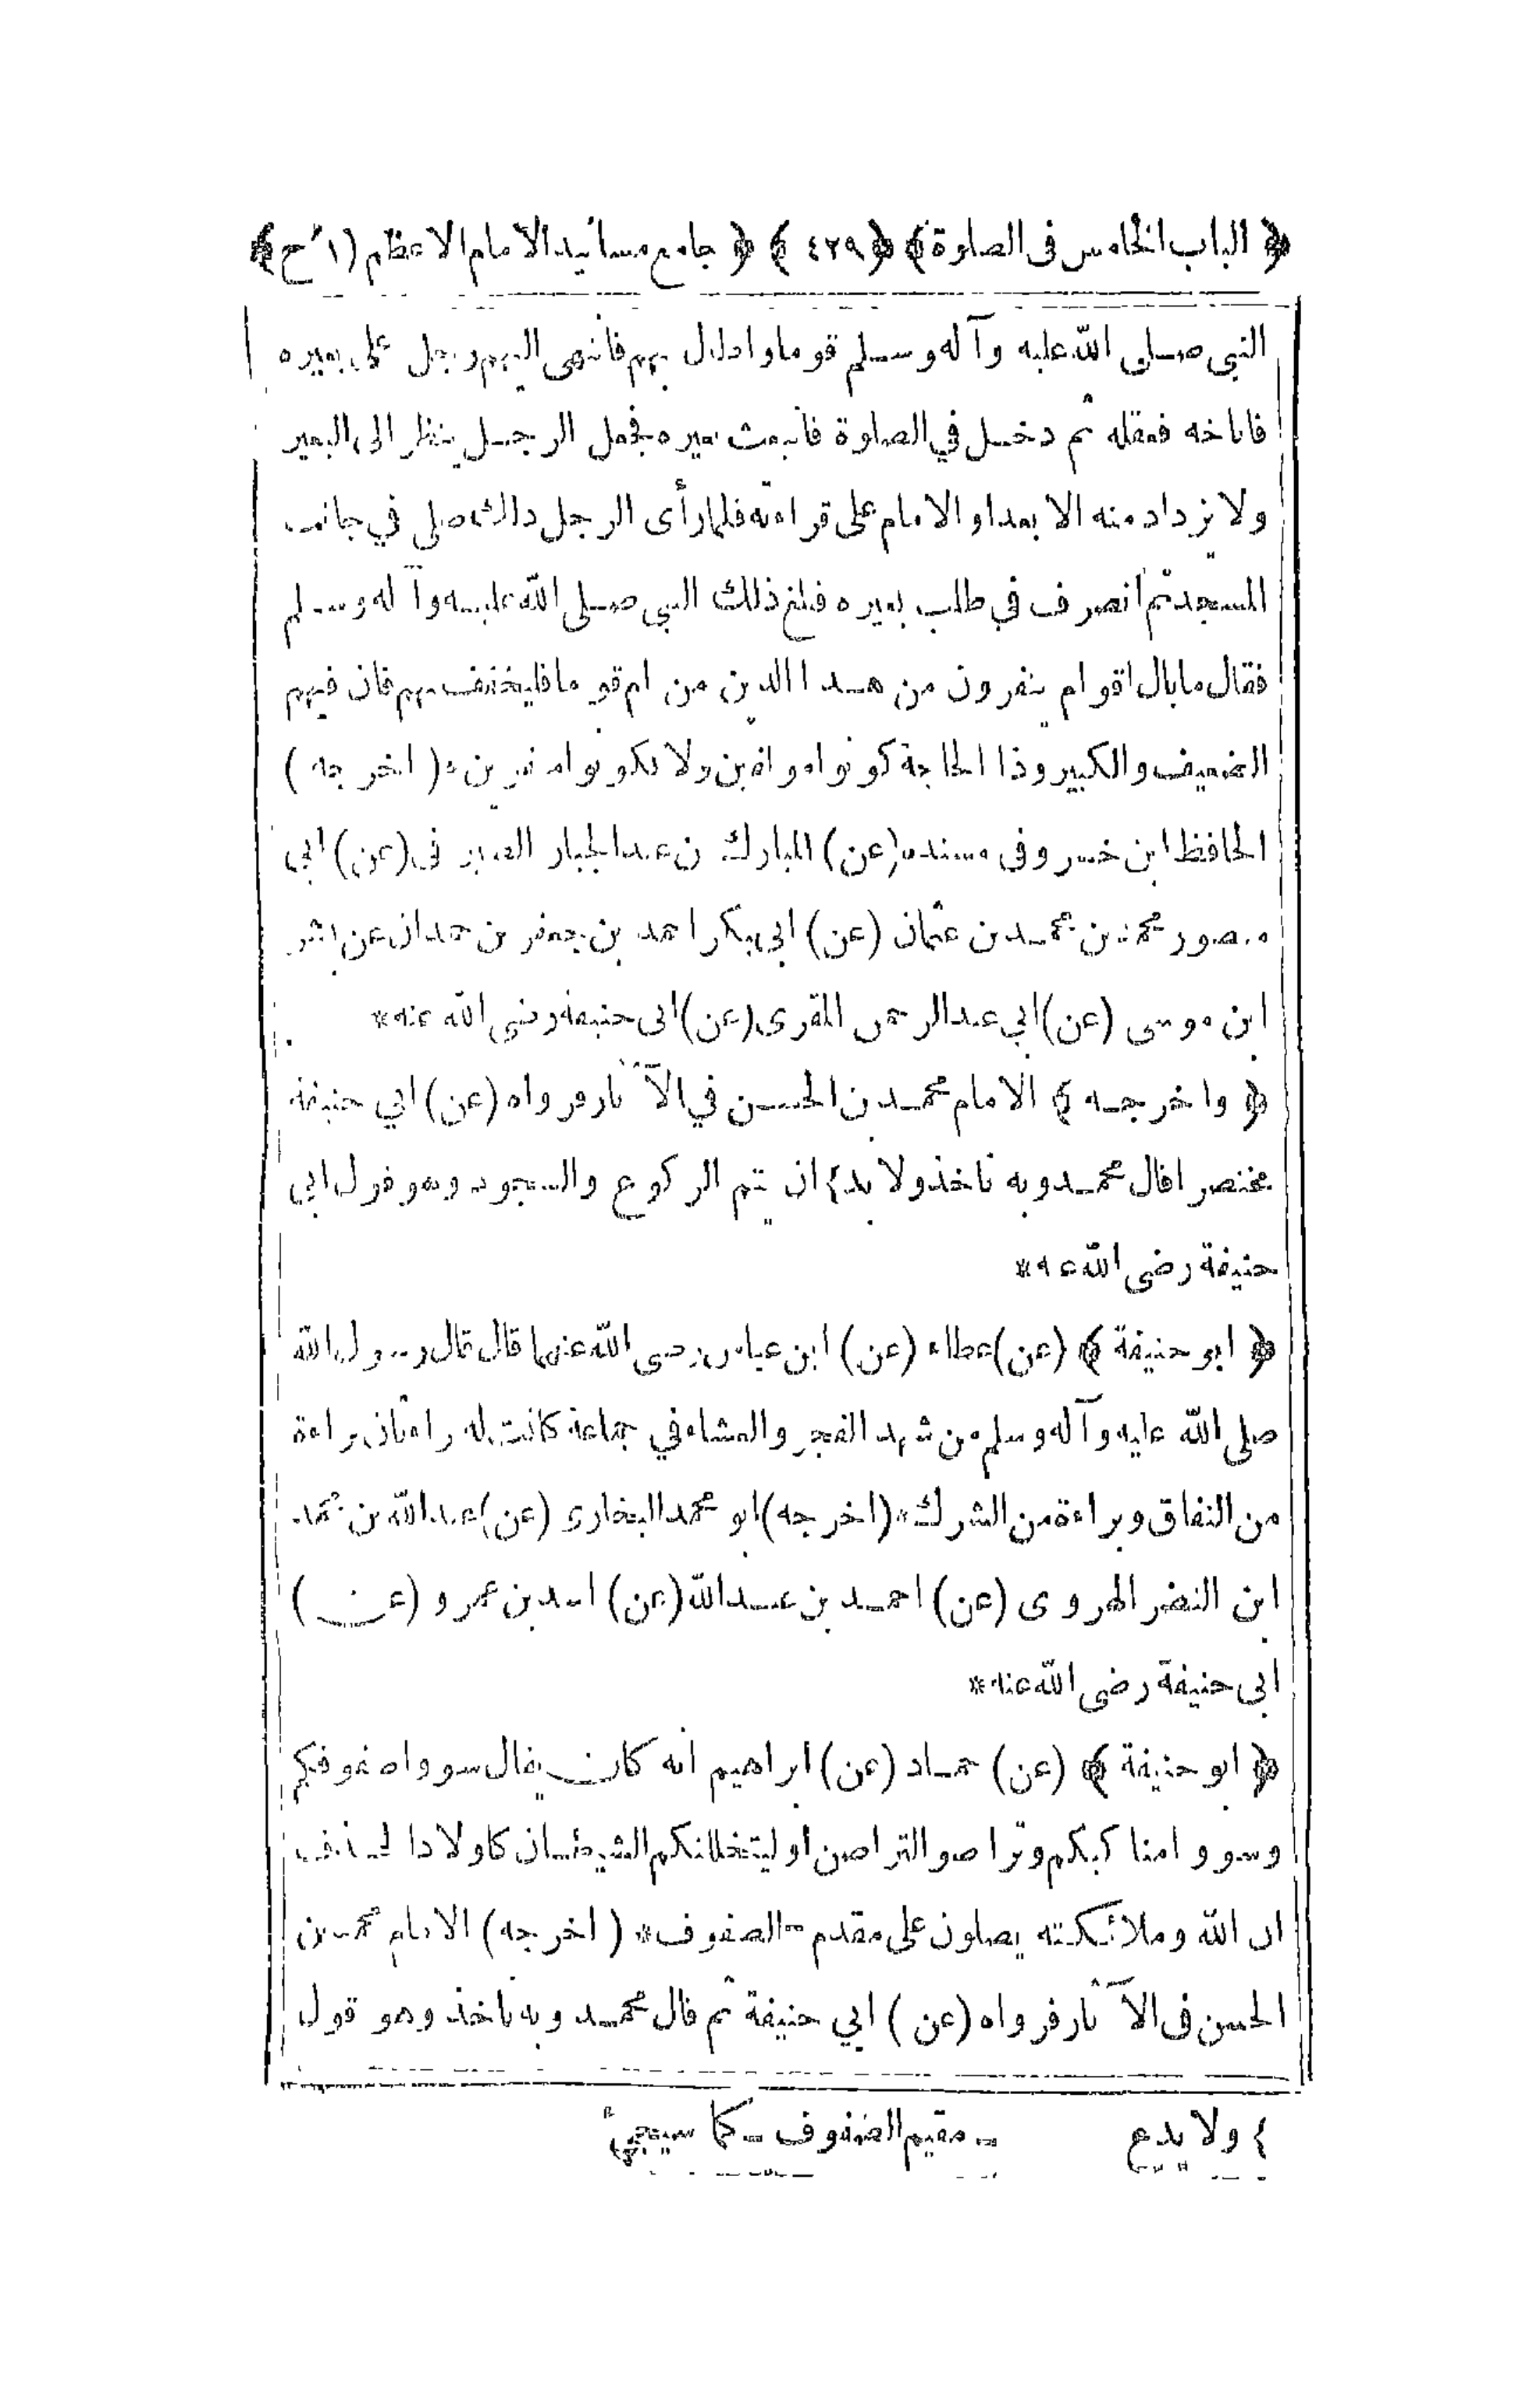 ﴿ الباب الخامس فى الصلوة ﴾ ﴿ ٤٢٩ ﴾ ﴿ جامع مسانيد الامام الاعظم (١ ح) ﴾
النبى صلى الله عليه وآله وسلم قوما واطال بهم فانتهى اليهم رجل على بعيره
فاناخه فعقله ثم دخل في الصلوة فانبعث بعيره فجعل الرجل ينظر الى البعير
ولا يزداد منه الا بعدا والامام على قراءته فلما رأى الرجل ذالك صلى في جانب
المسجد ثم انصرف في طلب بعيره فبلغ ذلك النبي صلى الله عليه وآله وسلم
فقال ما بال اقوام ينفرون من هذا الدين من ام قوما فليخفف بهم فان فيهم
الضعيف والكبير وذا الحاجة كونوا مؤلفين ولا تكونوا منفرين * ( اخرجه )
الحافظ ابن خسرو فى مسنده (عن) المبارك بن عبد الجبار الصيرفى (عن) ابي
منصور محمد بن محمد بن عثمان (عن) ابى بكر احمد بن جعفر بن حمدان عن بشر
ابن موسى (عن) ابي عبد الرحمن المقرى (عن) ابى حنيفة رضى الله عنه *
﴿ واخرجه ﴾ الامام محمد بن الحسن في الآثار فرواه (عن) ابي حنيفة
مختصرا قال محمد وبه ناخذ ولا بد ٤ ان يتم الركوع والسجود وهو قول ابي
حنيفة رضى الله عنه *
﴿ ابو حنيفة ﴾ (عن) عطاء (عن) ابن عباس رضى الله عنهما قال قال رسول الله
صلى الله عليه وآله وسلم من شهد الفجر والعشاء في جماعة كانت له براءتان براءة
من النفاق وبراءة من الشرك * (اخرجه) ابو محمد البخارى (عن) عبد الله بن محمد
ابن النضر الهروى (عن) احمد بن عبد الله (عن) اسد بن عمرو (عن)
ابى حنيفة رضى الله عنه *
﴿ ابو حنيفة ﴾ (عن) حماد (عن) ابراهيم انه كان يقال سووا صفوفكم
وسووا مناكبكم وتراصوا لتراصن او ليتخللنكم الشيطان كاولاد الحذف
ان الله وملائكته يصلون على مقدم - الصفوف * ( اخرجه ) الامام محمد بن
الحسن فى الآثار فرواه (عن) ابي حنيفة ثم قال محمد وبه ناخذ وهو قول
٤ ولا يدع - مقيم الصفوف - كما سيجئ